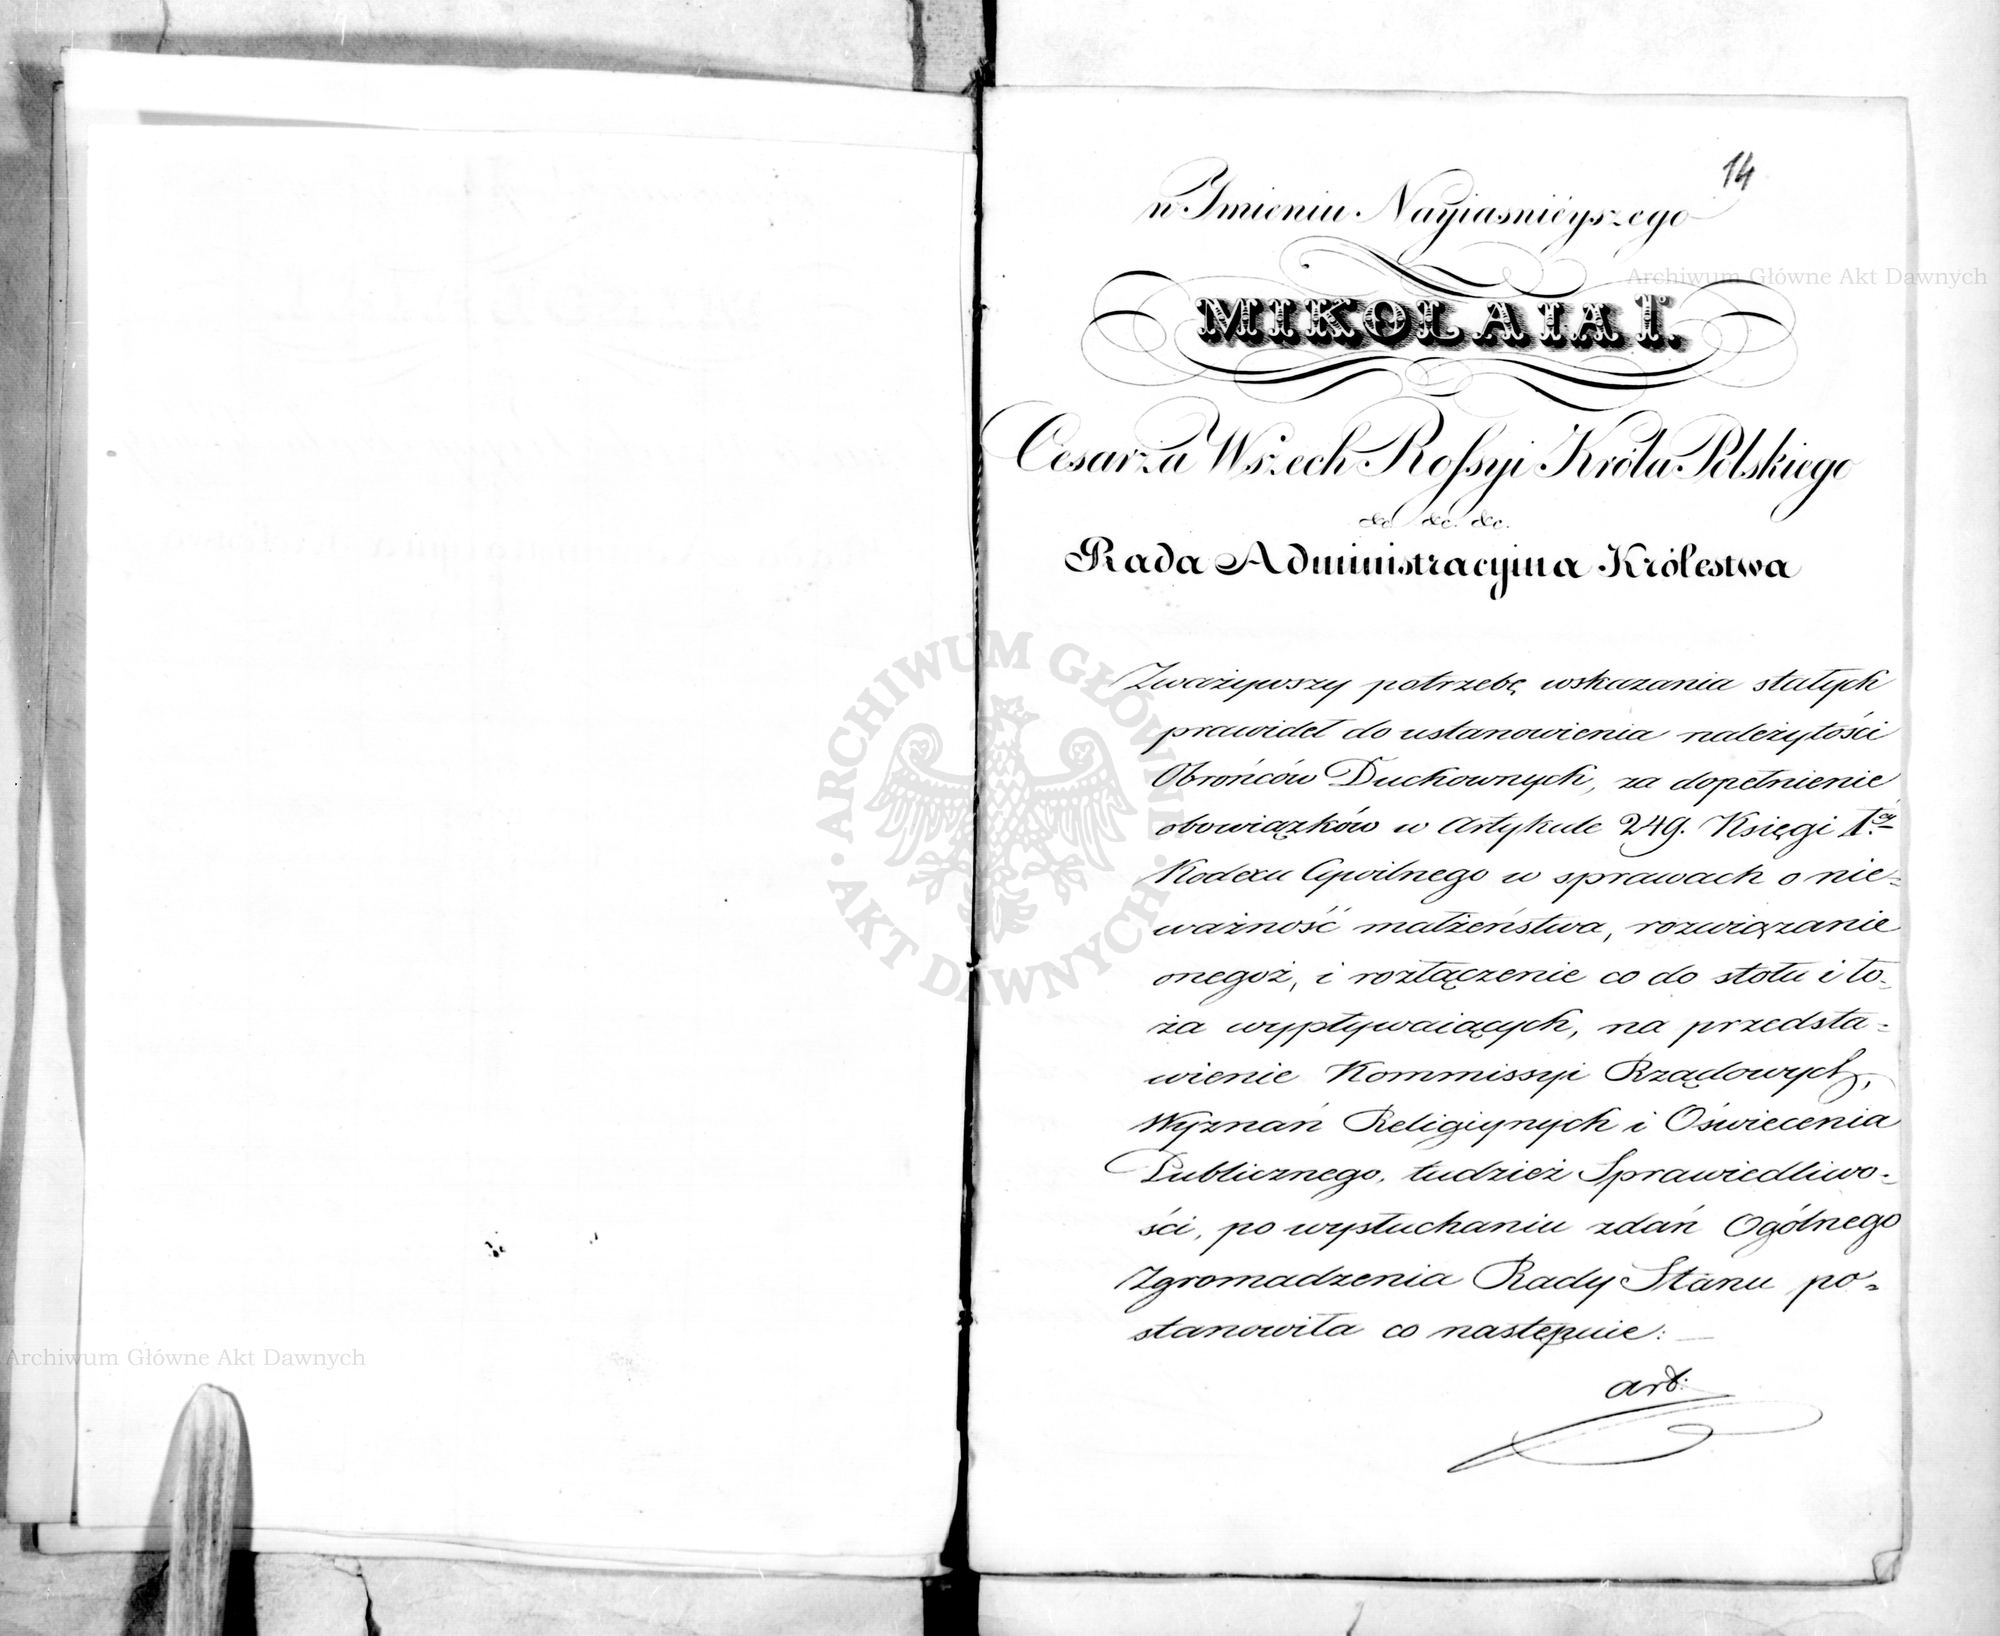 14
w Imieniu Nayiasnieyszego
MIKOŁAIA Iº.
Cesarza Wszech Rossyi Króla Polskiego
&c &c. &c.
Rada Administracyina Królestwa
Zważywszy potrzebę wskazania stałych
prawideł do ustanowienia należytości
Obrońców Duchownych, za dopełnienie
obowiązków w Artykule 249. Księgi 1.éy
Kodexu Cywilnego w sprawach o nie-
ważność małżeństwa, rozwiązanie
onegoż, i rozłączenie co do stołu i ło-
ża wypływaiących, na przedsta-
wienie Kommissyi Rządowych,
Wyznań Religiynych i Oświecenia
Publicznego, tudzież Sprawiedliwo-
ści, po wysłuchaniu zdań Ogólnego
Zgromadzenia Rady Stanu po-
stanowiła co następuie:
art:
Archiwum Główne Akt Dawnych
ARCHIWUM GŁÓWNE · AKT DAWNYCH ·
Archiwum Główne Akt Dawnych